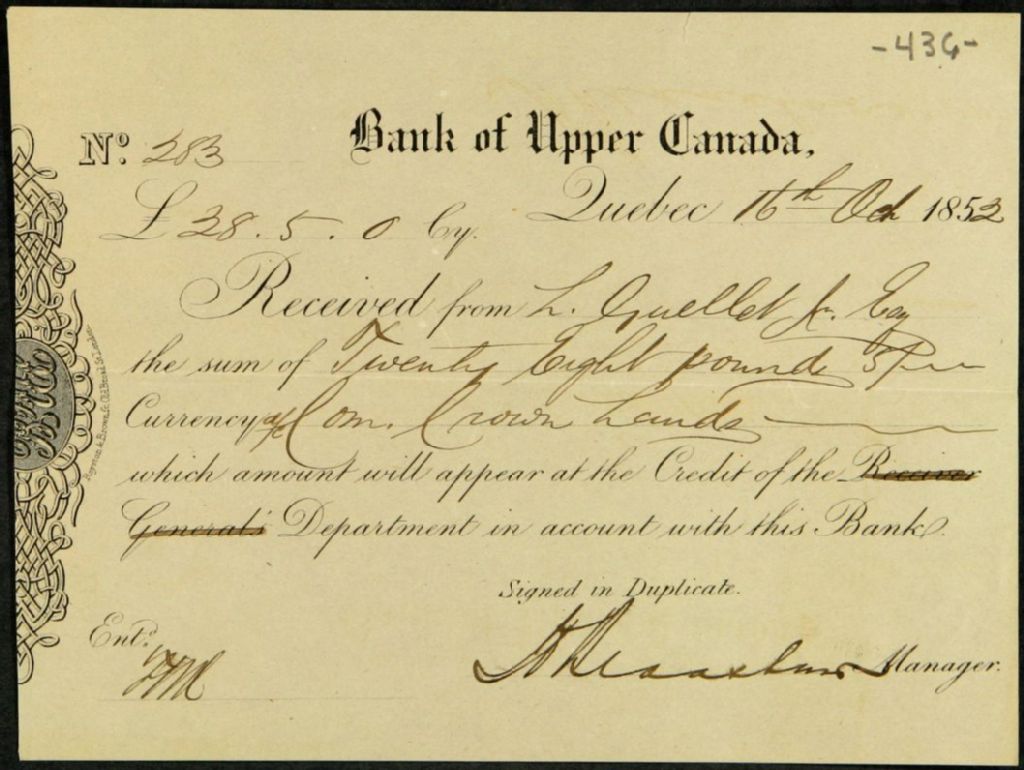 -436-
No. 283 Bank of Upper Canada,
Quebec 16th Oct 1852
£ 28.5.0 Cy.
Received from L. Ouellet Jr. Esq
the sum of Twenty Eight pounds 5/
Currency a/c Com. Crown Lands
which amount will appear at the Credit of the Receiver
General's Department in account with this Bank.
Signed in Duplicate.
Entd.
Manager.